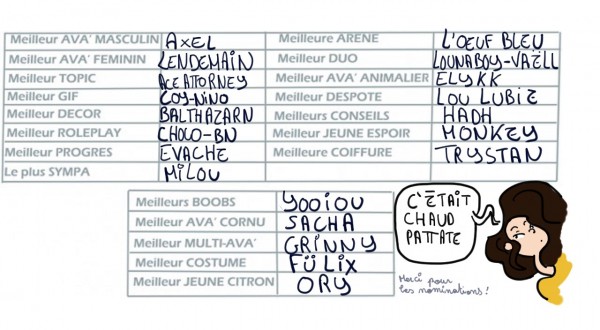 Meilleur AVA' MASCULIN AXEL
Meilleur AVA' FEMININ LENDEMAIN
Meilleur TOPIC ACE ATTORNEY
Meilleur GIF COY-NINO
Meilleur DECOR BALTHAZARN
Meilleur ROLEPLAY CHOCO-BN
Meilleur PROGRES EVACHE
Le plus SYMPA MILOU
Meilleure ARENE L'OEUF BLEU
Meilleur DUO LOUNABOY-VAËLL
Meilleur AVA' ANIMALIER ELYKK
Meilleur DESPOTE LOU LUBIE
Meilleurs CONSEILS HADH
Meilleur JEUNE ESPOIR MONKEY
Meilleure COIFFURE TRYSTAN
Meilleurs BOOBS YOOIOU
Meilleur AVA' CORNU SACHA
Meilleur MULTI-AVA' GRINNY
Meilleur COSTUME FÜLIX
Meilleur JEUNE CITRON ORY
C'ÉTAIT
CHAUD
PATTATE
Merci pour
les nominations !